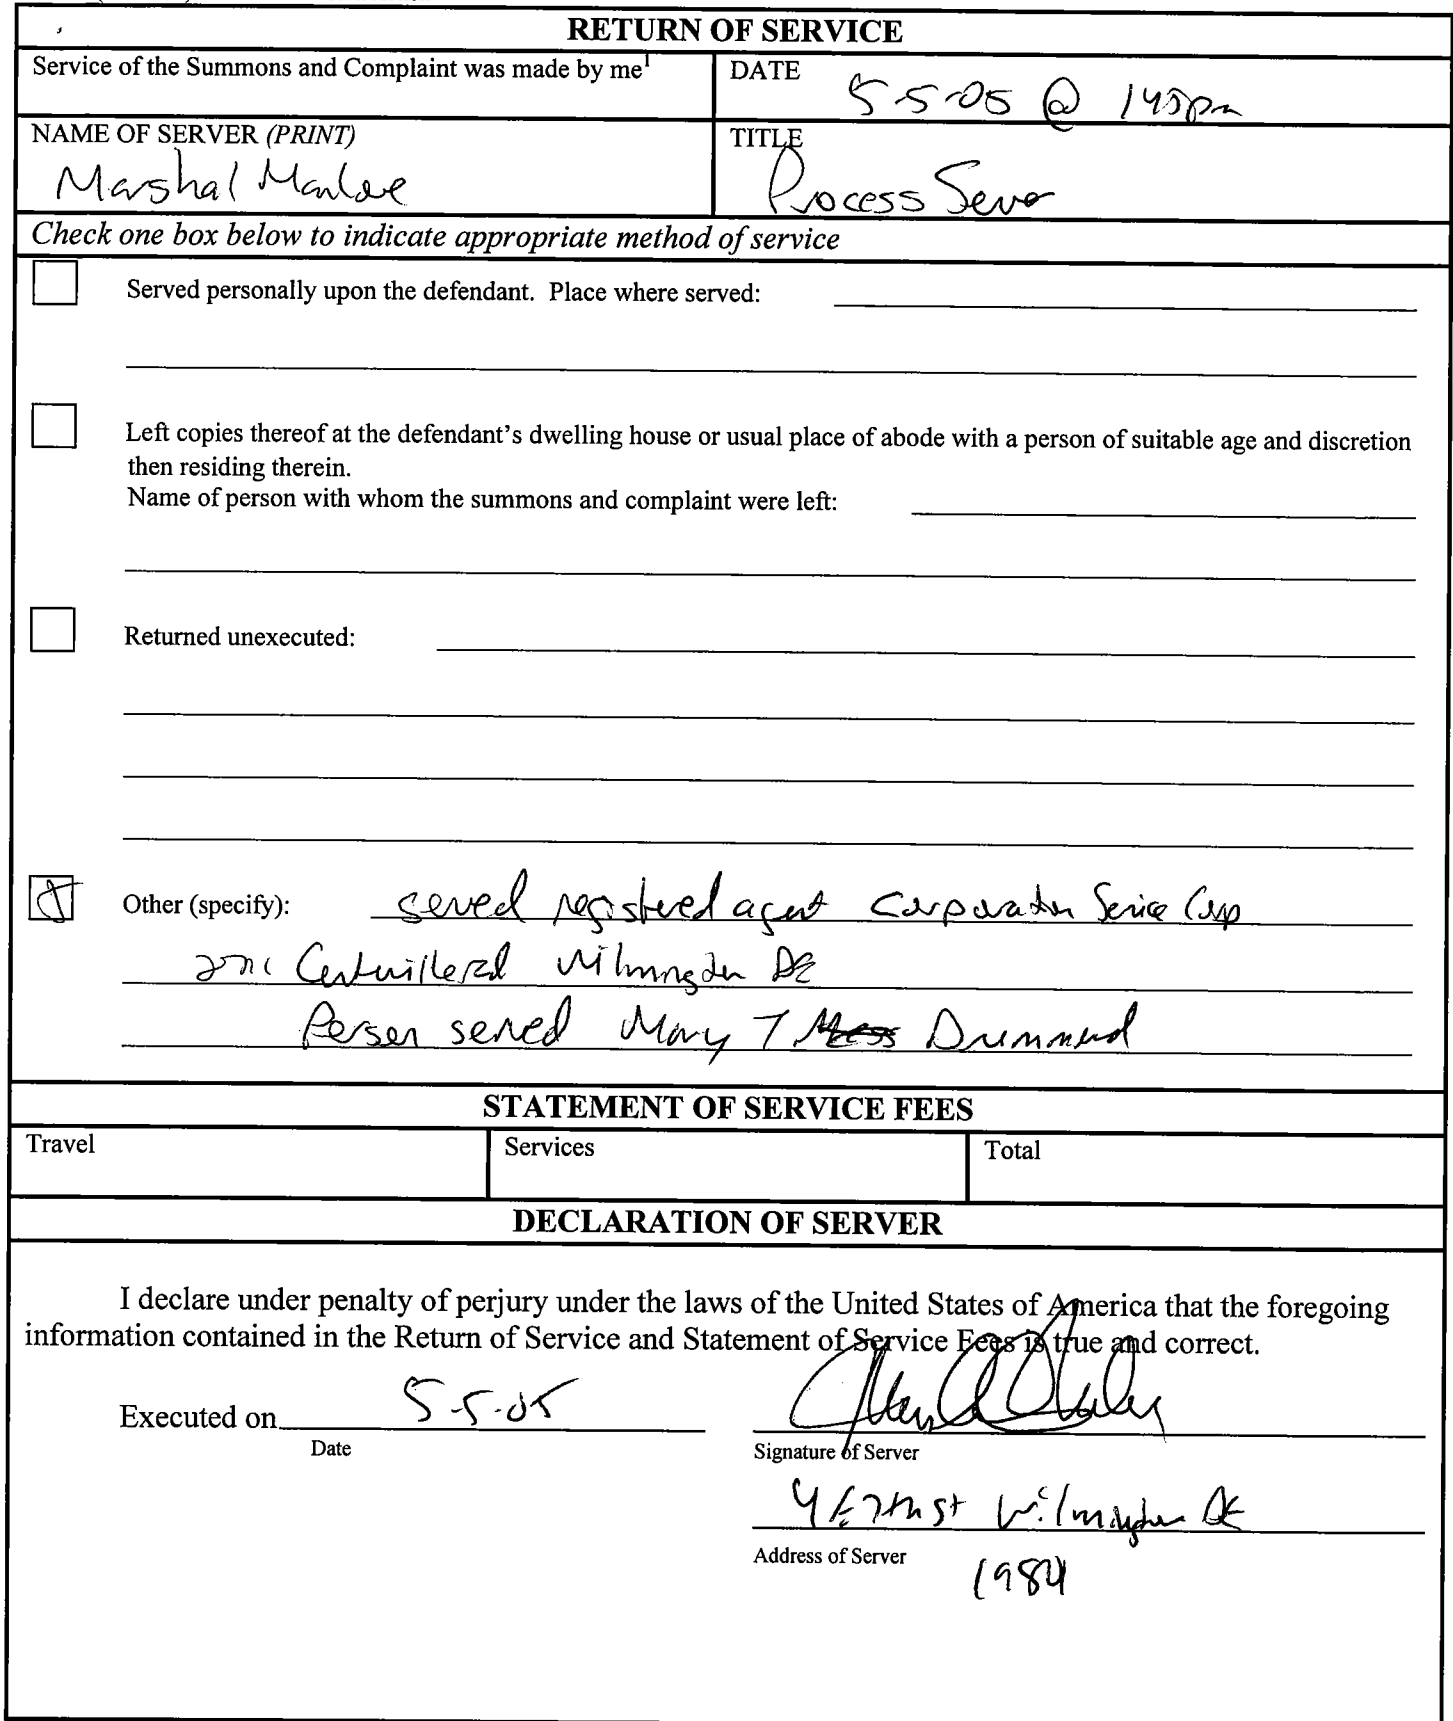 RETURN OF SERVICE
Service of the Summons and Complaint was made by me¹
DATE
5-5-05 @ 145pm
NAME OF SERVER (PRINT)
Marshal
TITLE
Process Server
Check one box below to indicate appropriate method of service
Served personally upon the defendant. Place where served:
Left copies thereof at the defendant's dwelling house or usual place of abode with a person of suitable age and discretion
then residing therein.
Name of person with whom the summons and complaint were left:
Returned unexecuted:
Other (specify): served registered agent Corporation Service Corp
Centerville Rd Wilmington DE
Person served Mary T Drummond
STATEMENT OF SERVICE FEES
Travel
Services
Total
DECLARATION OF SERVER
I declare under penalty of perjury under the laws of the United States of America that the foregoing
information contained in the Return of Service and Statement of Service Fees is true and correct.
Executed on 5-5-05
Date
Signature of Server
4 E 7th St Wilmington DE
Address of Server